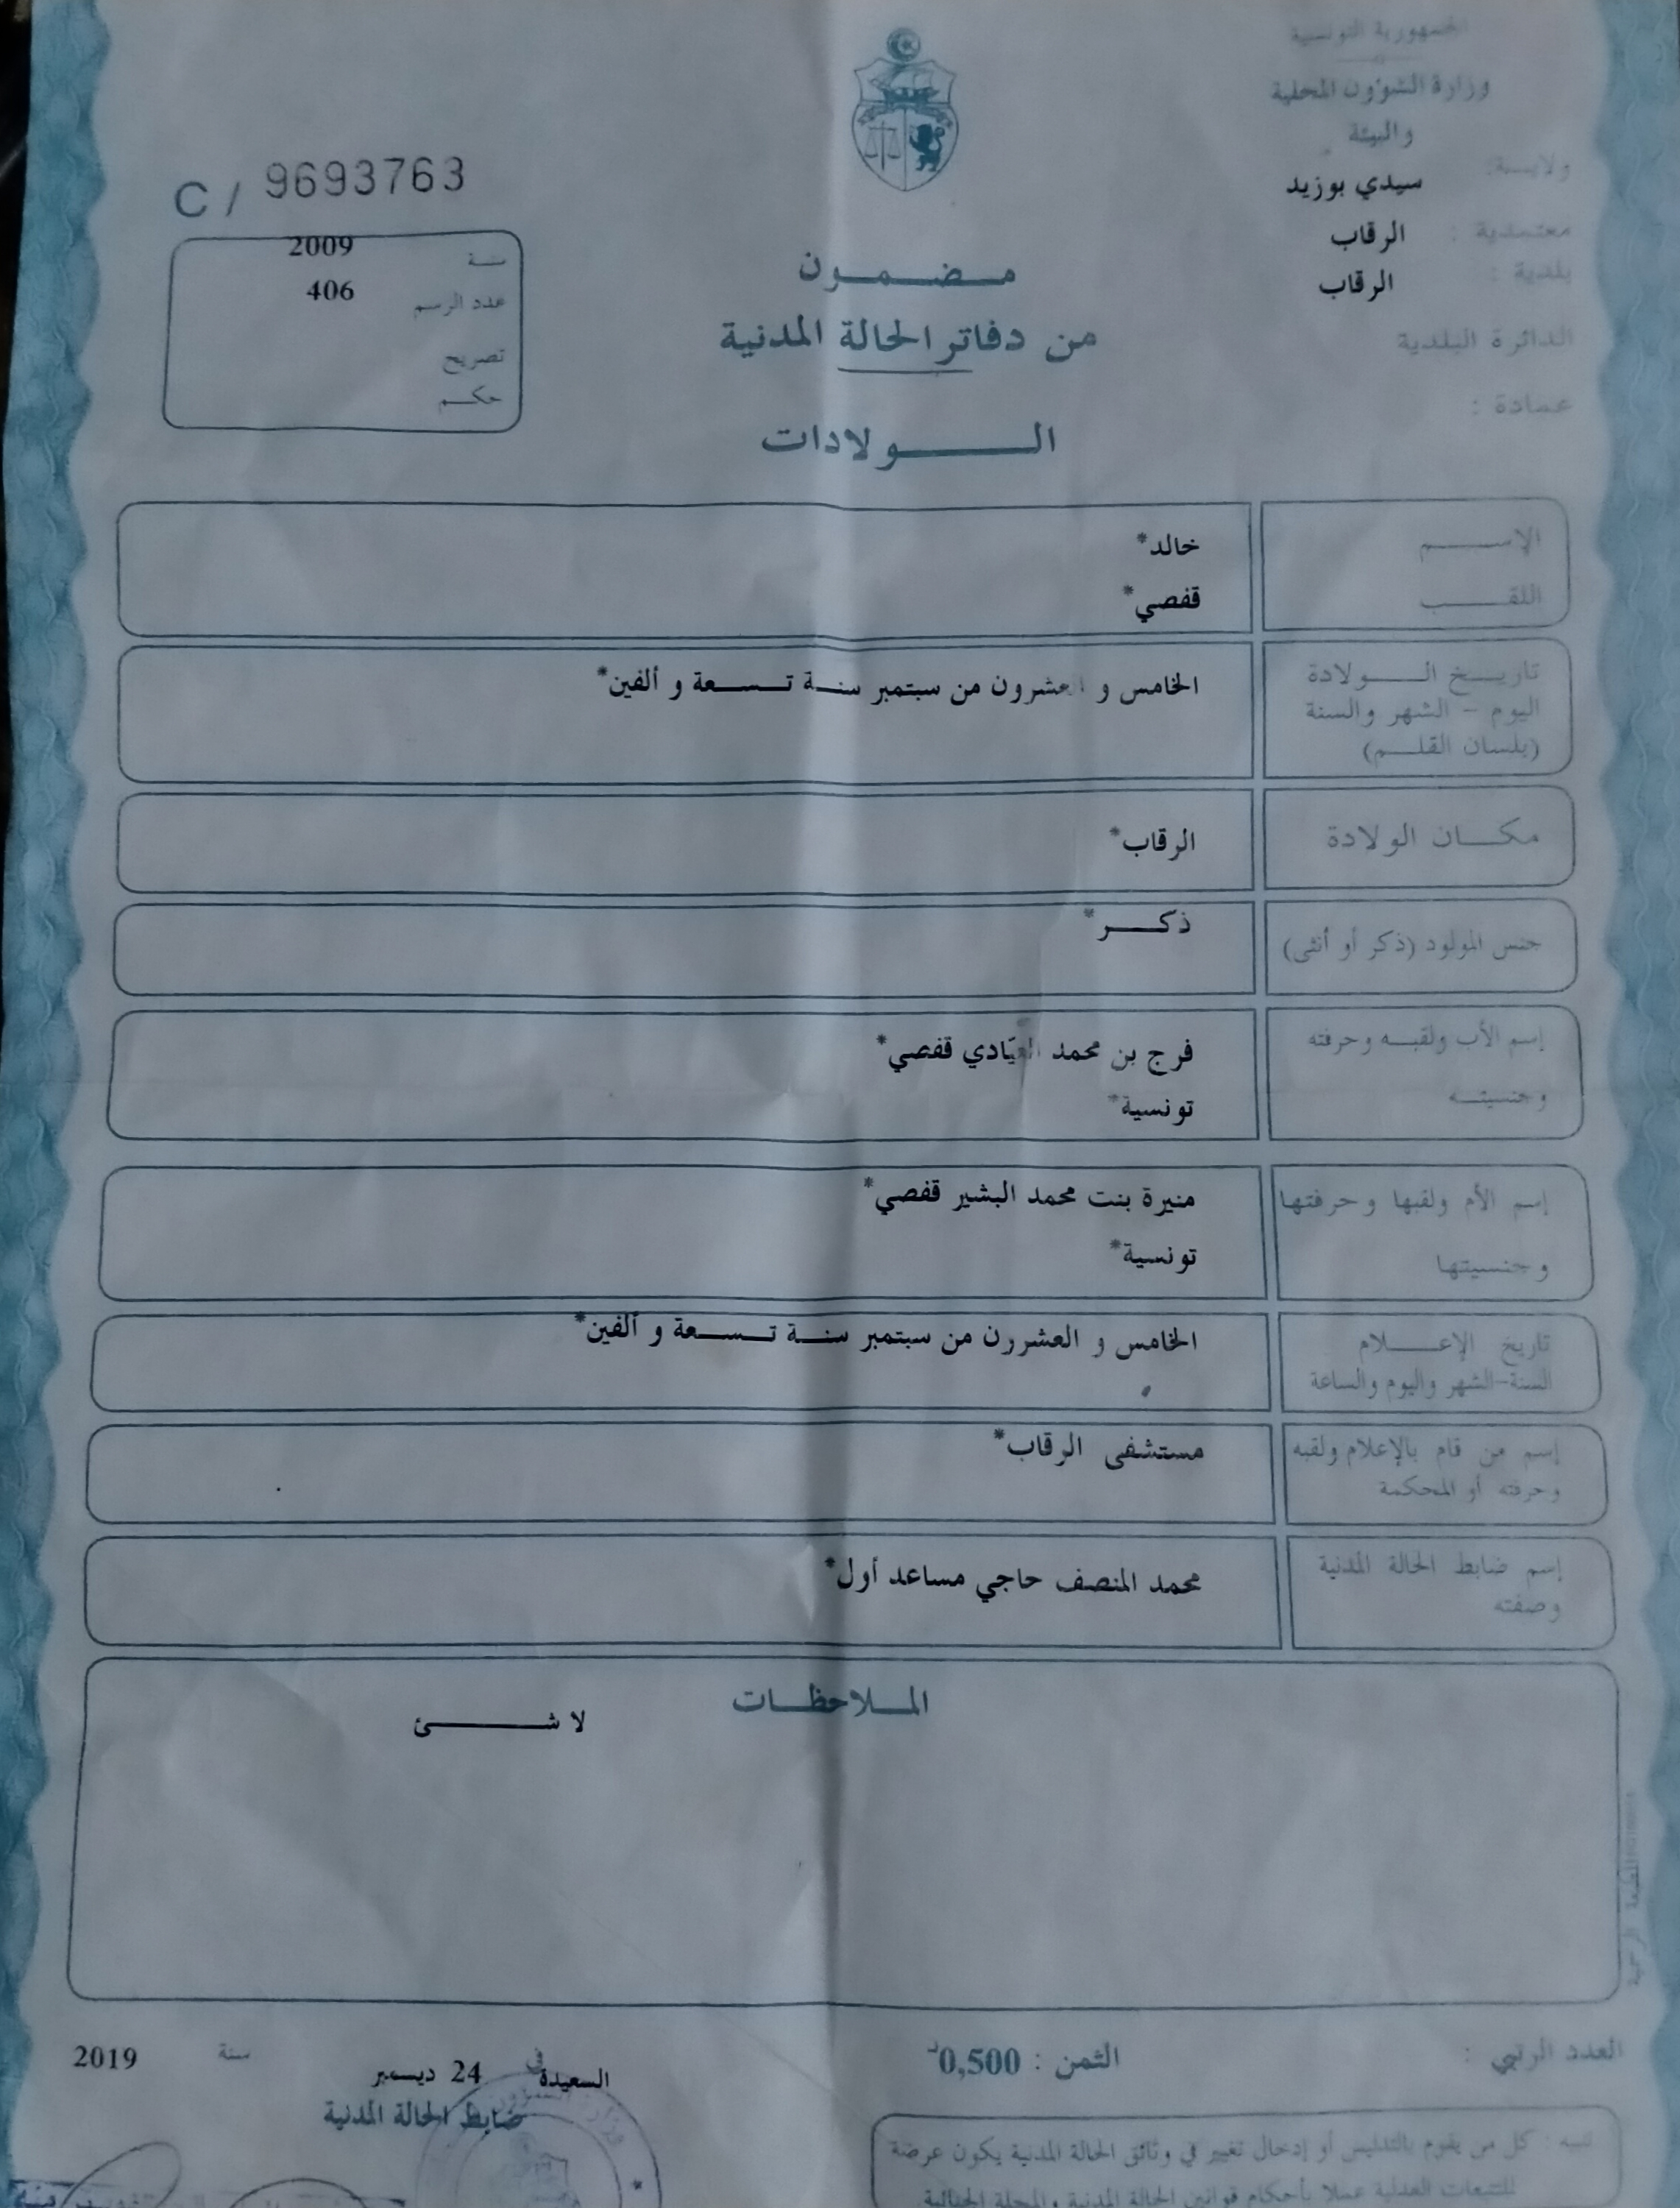 الجمهورية التونسية
وزارة الشؤون المحلية
والبيئة
ولايـة: سيدي بوزيد
معتمدية : الرقاب
بلدية : الرقاب
الدائرة البلدية
عمادة :
C / 9693763
سنة 2009
عدد الرسم 406
تصريح
حكم
مضمون
من دفاتر الحالة المدنية
الولادات
الإسم خالد*
اللقب قفصي*
تاريخ الولادة
اليوم - الشهر والسنة
(بلسان القلم)
الخامس و العشرون من سبتمبر سنة تسعة و ألفين*
مكان الولادة الرقاب*
جنس المولود (ذكر أو أنثى) ذكر*
إسم الأب ولقبه وحرفته فرج بن محمد العيّادي قفصي*
وجنسيته تونسية*
إسم الأم ولقبها وحرفتها منيرة بنت محمد البشير قفصي*
وجنسيتها تونسية*
تاريخ الإعلام الخامس و العشررن من سبتمبر سنة تسعة و ألفين*
السنة-الشهر واليوم والساعة
إسم من قام بالإعلام ولقبه مستشفى الرقاب*
وحرفته أو المحكمة
إسم ضابط الحالة المدنية محمد المنصف حاجي مساعد أول*
وصفته
الملاحظات
لا شئ
العدد الرتبي :
الثمن : 0,500د
السعيدة في 24 ديسمبر سنة 2019
ضابط الحالة المدنية
تنبيه : كل من يقوم بالتدليس أو إدخال تغيير في وثائق الحالة المدنية يكون عرضة
للتتبعات العدلية عملا بأحكام قوانين الحالة المدنية والمجلة الجنائية